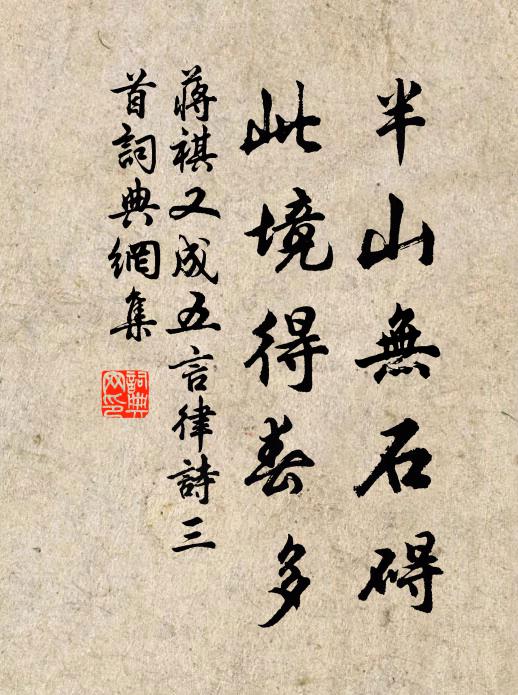 半山無石碍
此境得春多
蒋祺又成五言律詩三
首詞典網集
詞典
网印